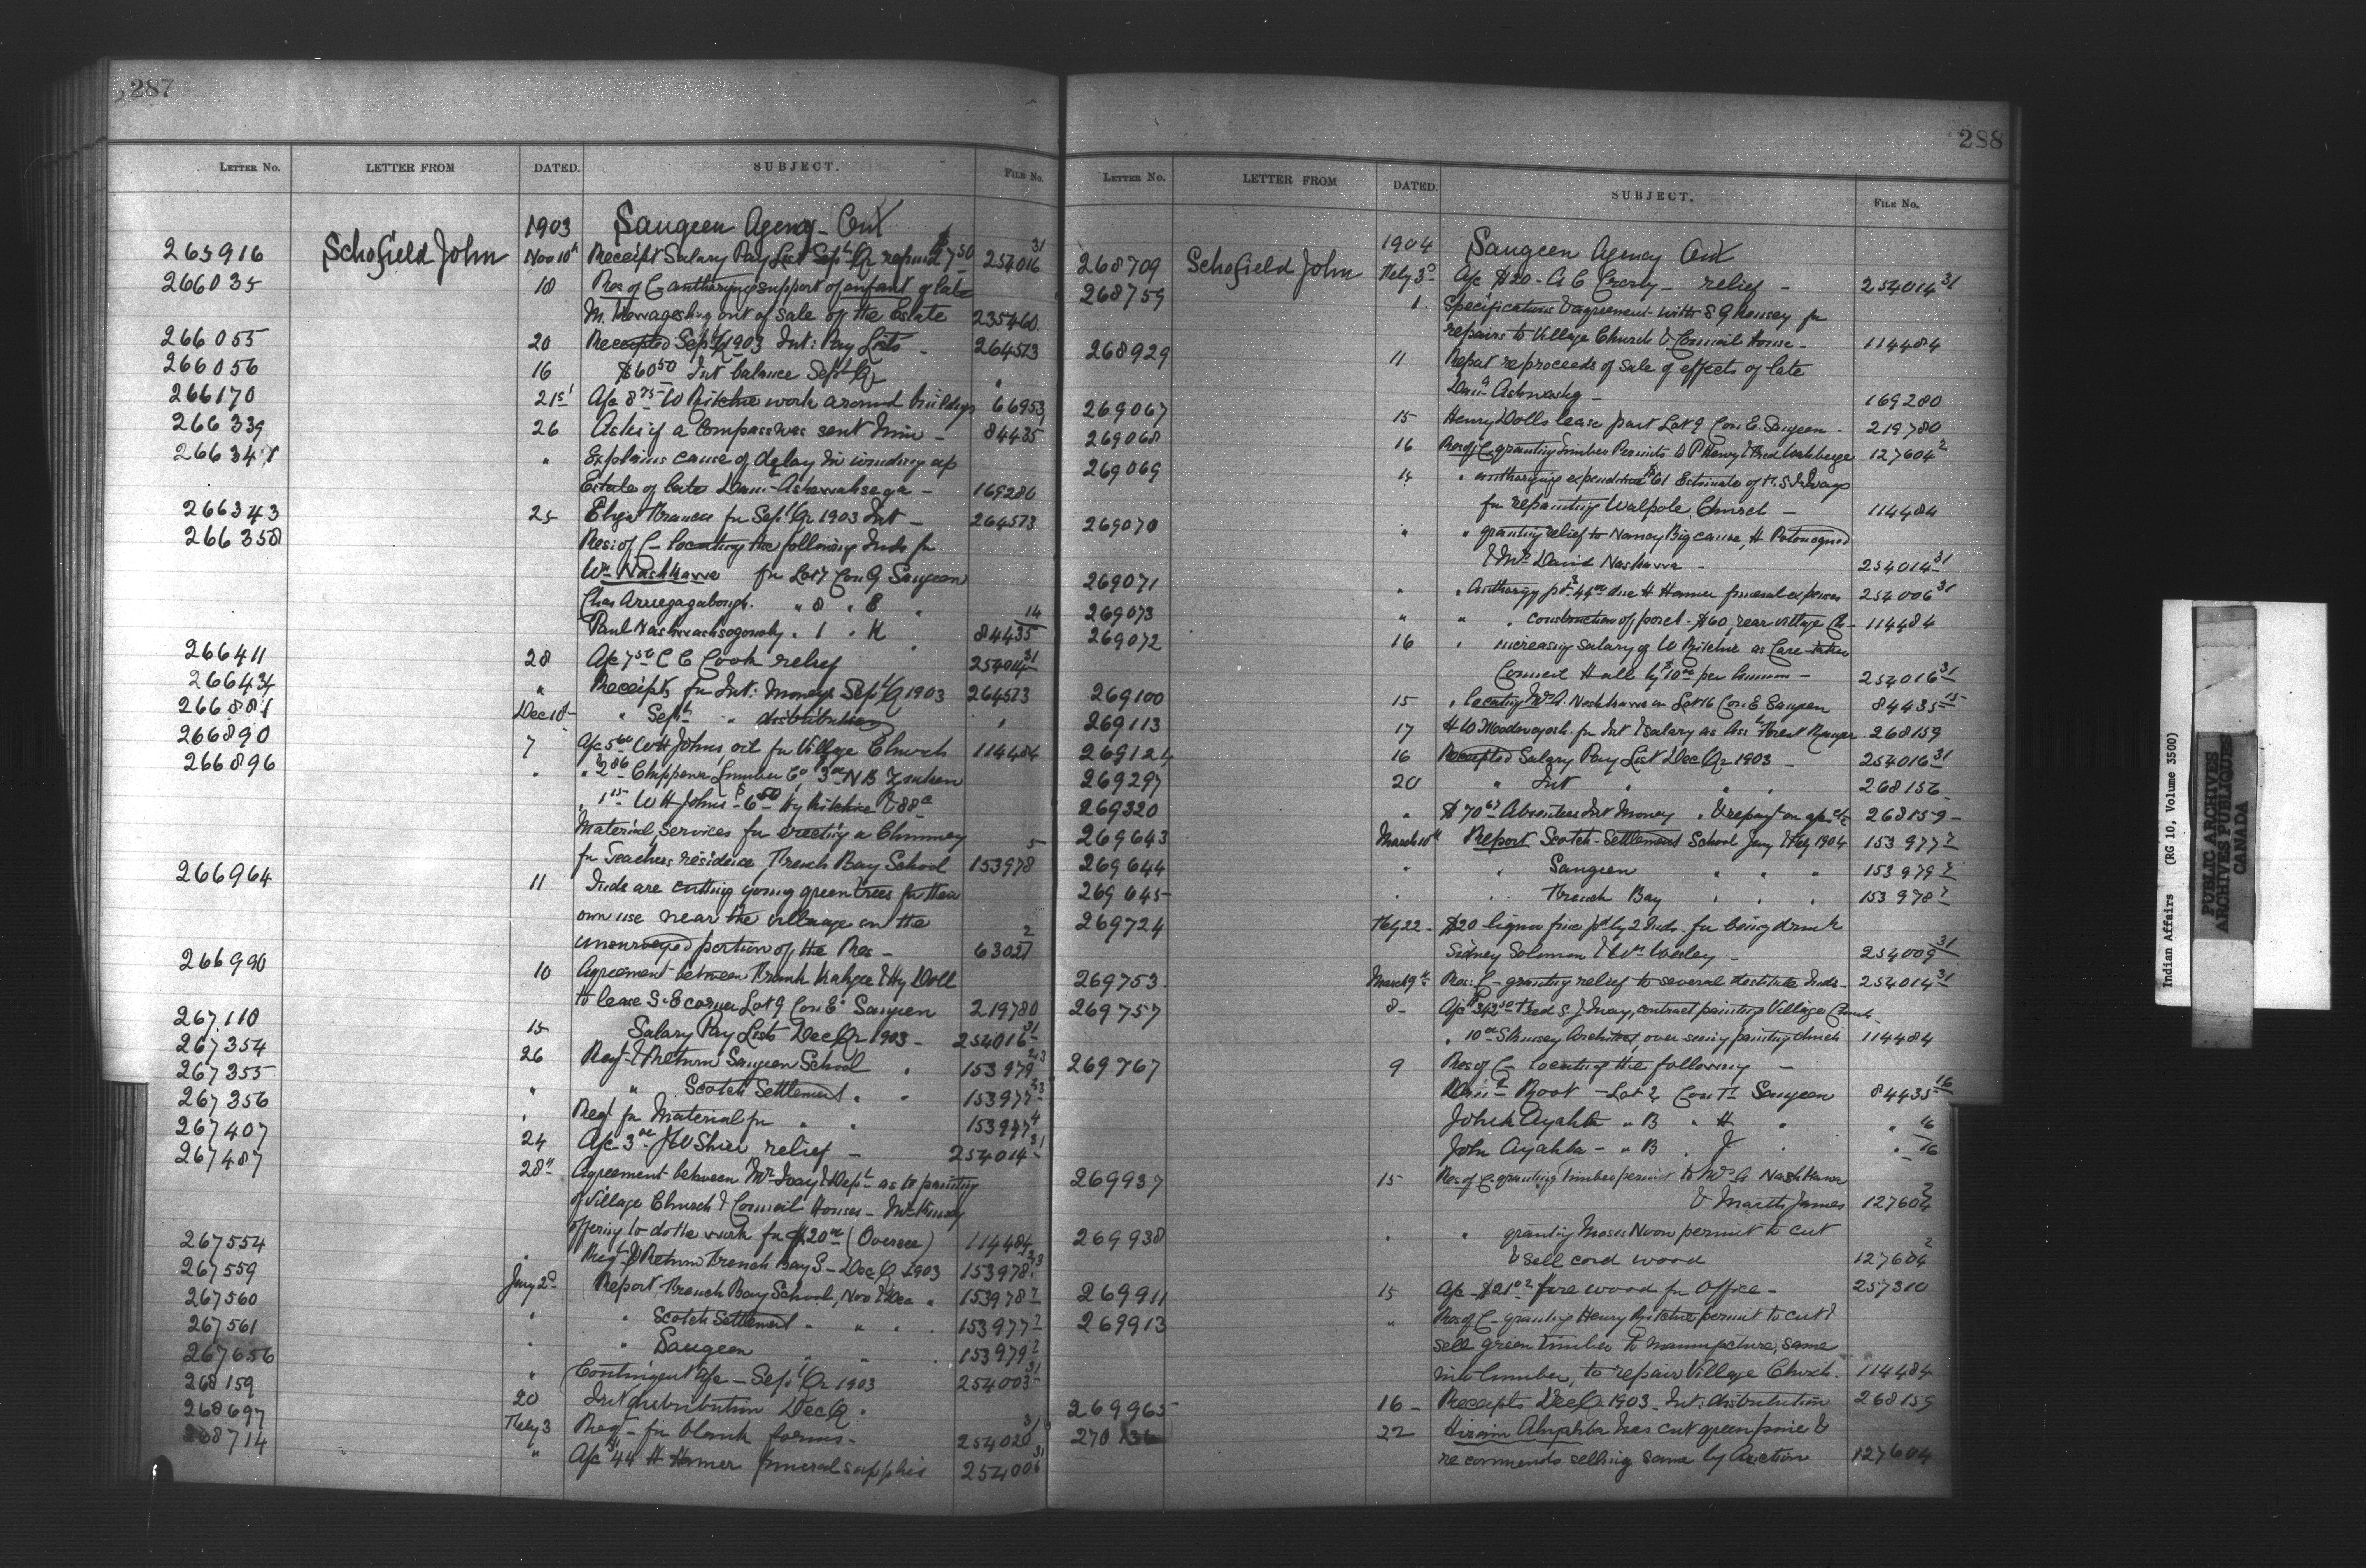 287
LETTER NO. LETTER FROM DATED. SUBJECT. FILE No.
1903 Saugeen Agency Ont
265916 Schofield John Nov 10th Receipt Salary Pay List Sept Qr refund $7.50 254016 31
266035 18 Res of C authorizing support of infant of late
M. out of sale of the Estate 235460
266055 20 Receipted Sept Qr 1903 Int: Pay Lists 264573
266056 16 $60.50 Int balance Sept Qr "
266170 21st A/c 8.75 W Ritchie work around buildings 66953
266339 26 Asks if a compass was sent him - 84435
266341 " Explains cause of delay in winding up
Estate of late Danl - 169280
266343 25 Eliza Frances for Sept Qr 1903 Int - 264573
266358 Res: of C - locating the following Inds for
Wm Nashkawa for Lot 7 Con 9 Saugeen
Chas " 8 " 8 "
Paul " 1 " K " 84435 14
266411 28 A/c 7.50 C C Cook relief 254014 31
266434 " Receipts for Int: Moneys Sept Qr 1903 264573
266881 Dec 10th " Sept " distribution "
266890 7 A/c 5.60 W H Johns, oil for Village Church 114484
266896 " " 2.86 Chippewa Lumber Co 3.00 N B Zinkan
" 1.15 W H Johns $6.50 Hy Ritchie & 88c
Material, Services for erecting a Chimney
for Teachers residence, French Bay School 153978 5
266964 11 Inds are cutting young green trees for their
own use near the village on the
unsurveyed portion of the Res - 63021 2
266990 10 Agreement between Frank & Hy Doll
to lease S.E corner Lot 9 Con E. Saugeen 219780
267110 15 Salary Pay Lists Dec Qr 1903 - 254016 31
267354 26 Reqt & Return Saugeen School " 153979 23
267355 " " Scotch Settlement " " 153977 23
267356 " Reqt for Material for " " 153977 4
267407 24 A/c 3.00 J W Shier relief - 254014 31
267487 28th Agreement between Mr Ivay & Dept as to painting
of Village Church & Council Houses - Mr Kinsey
offering to do the work for $20.00 (Oversee) 114484
267554 " Reqt & Return French Bay S - Dec Qr 1903 153978 23
267559 Jany 2d Report, French Bay School, Nov & Dec " 153978 7
267560 " " Scotch Settlement " " " 153977 7
267561 " " Saugeen " " 153979 7
267656 " Contingent A/c - Sept Qr 1903 254003 31
268159 20 Int distribution Dec Qr.
268697 Feby 3 Reqt - for blank forms - 254020 31
268714 " A/c $44 H Hamer funeral supplies 254006 31
288
LETTER NO. LETTER FROM DATED. SUBJECT. FILE No.
1904 Saugeen Agency Ont
268709 Schofield John Feby 3d A/c $20 - A C Crosby - relief - 254014 31
268759 1. Specifications & agreement with S G Kinsey for
repairs to Village Church & Council House - 114484
268929 11 Report re proceeds of sale of effects of late
Danl - 169280
269067 15 Henry Dolls lease part Lot 9 Con E. Saugeen - 219780
269068 16 Res of C. granting timber Permits to P Henry & Fred 127604 2
269069 15 " authorizing expenditure $61 Estimate of F. S. J. Ivay
for repainting Walpole Church - 114484
269070 " " granting relief to Nancy Big canoe, H
& Mrs David Nashkawa - 254014 31
269071 " " Authorizg pt $44.00 due H Hamer funeral expenses 254006 31
269073 " " " construction of porch - $60 rear village Ch - 114484
269072 16 " increasing Salary of W Ritchie as Care-taker
Council Hall by $10.00 per Annum - 254016 31
269100 15 " locating Mrs A. Nashkawa on Lot 16 Con E. Saugeen 84435 15
269113 17 H W for Int & salary as Asst Forest Ranger 268159
269124 16 Receipted Salary Pay List Dec Qr 1903 - 254016 31
269297 20 " Int " " " 268156
269320 " $70.67 Absentees Int Money " & report on 268159
269643 March 10th Report Scotch Settlement School Jany & Feby 1904 153977 7
269644 " " Saugeen " " " 153979 7
269645 " " French Bay " " " 153978 7
269724 Feby 22 - $20 liquor fine pd by 2 Inds. for being drunk
Sidney Solomon & Wm Wesley - 254009 31
269753 March 9th Res: C - granting relief to several destitute Inds - 254014 31
269757 8 - A/c $342.50 Fred S. J. Ivay, contract painting Village Church -
" 10.00 S Kinsey Architect, over-seeing painting church 114484
269767 9 Res of C - locating the following -
Root - Lot 2 Con Saugeen 84435 16
John Ayahba " B " H " " 16
John Ayahba - " B " J " " 16
269937 15 Res of C. granting timber permit to Mrs A Nashkawa
& Martha James 127604 2
269938 " " granting Moses Noon permit to cut
& sell cord wood 127604 2
269911 15 A/c - $21.02 fire wood for Office - 257310
269913 " Res of C - granting Henry Ritchie permit to cut &
sell green timber to manufacture, same
into lumber, to repair Village Church. 114484
269965 16 - Receipts Dec Qr 1903 - Int: distribution 268159
270 22 Hiram Ahyahba has cut green pine &
recommends selling same by Auction 127604
Indian Affairs (RG 10, Volume 3500)
PUBLIC ARCHIVES
ARCHIVES PUBLIQUES
CANADA